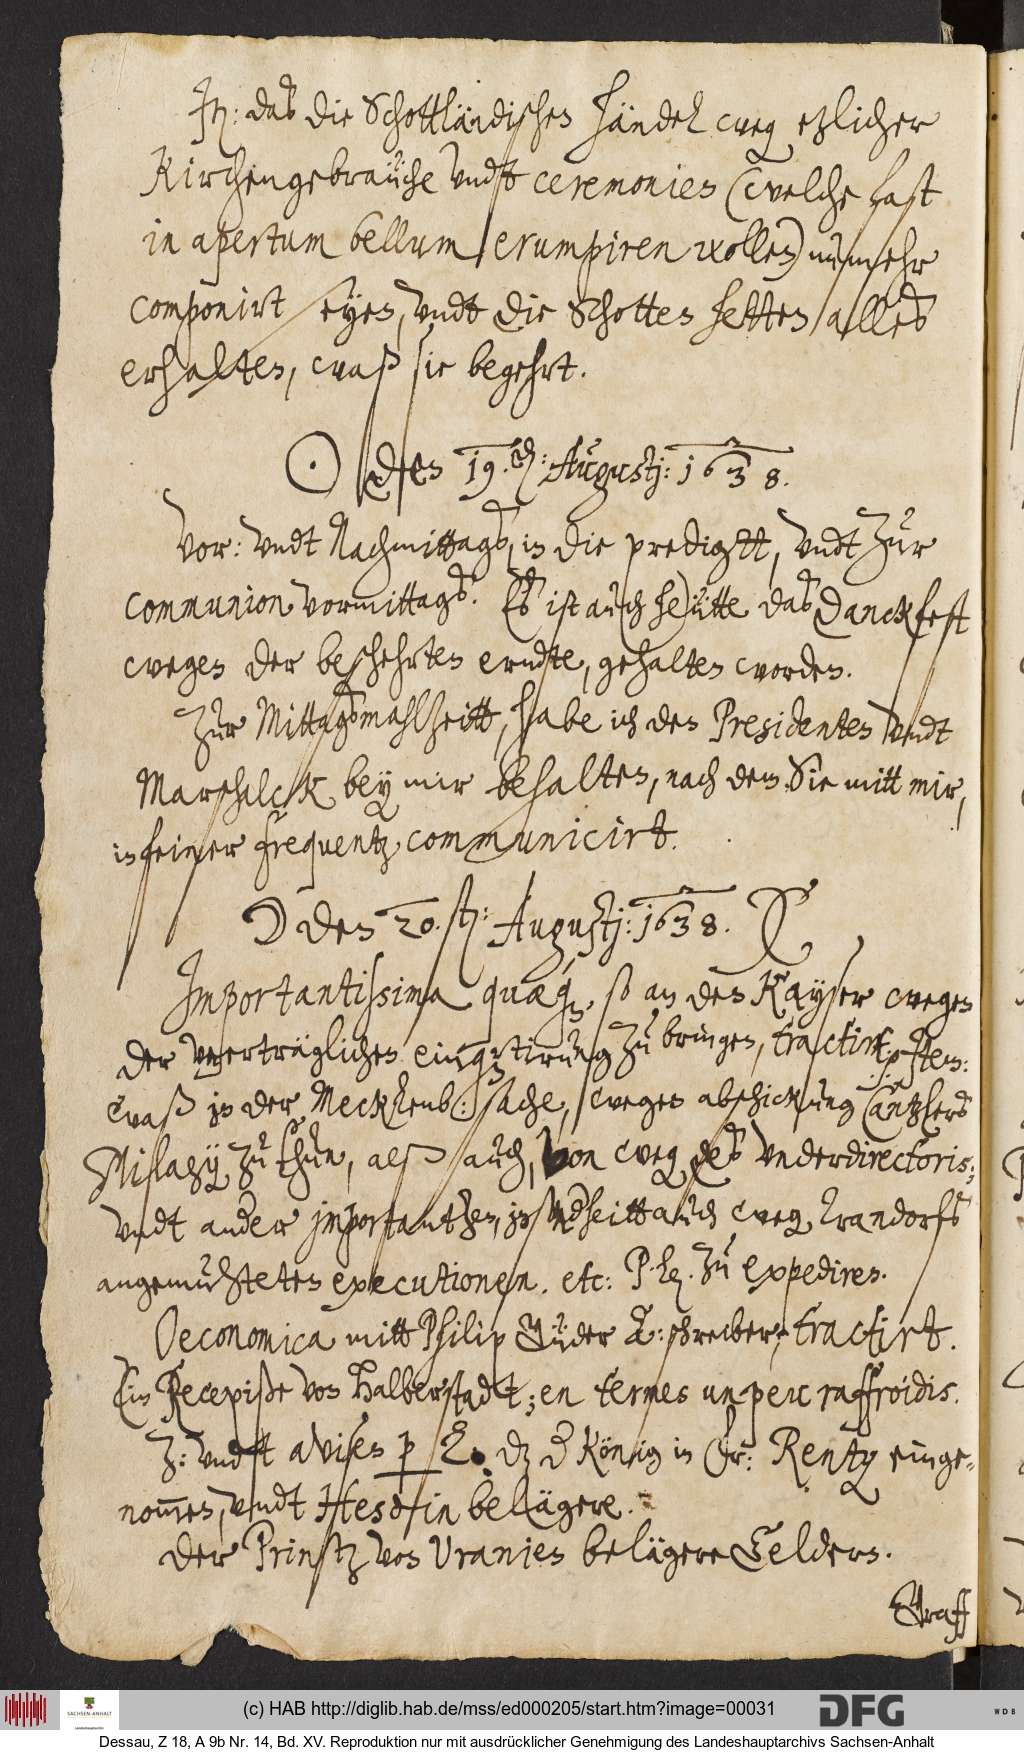 Jt: das die Schottländischen händel weg etzlicher
Kirchengebräuche vndt ceremonien (welche fast
in apertum bellum erumpiren wollen) nunmehr
componirt seyen, vndt die Schotten hetten alles
erhalten, waß sie begehrt.
☉ den 19. Augustj: 1638.
Vor: vndt Nachmittags, in die predigtt, vndt zur
communion vormittags. Es ist auch heütte das Danckfest
wegen der beschehrten erndte, gehalten worden.
Zur Mittagsmahlzeitt, habe ich den Presidenten vndt
Marschalck bey mir behalten, nach dem Sie mitt mir,
in feiner frequentz communicirt.
☽ den 20. Augustj: 1638.
Importantissima quæq, so an den Kayser wegen
der vnerträglichen einq.tirung zu bringen, tractirt. Item:
waß in der Mecklenb: sache, wegen abschickung Cantzlers
zu thun, alß auch, von weg des vnderdirectorij;
vndt ander importantzen, in auch weg, Krandorfs
angemuhteten executionen. etc: zu expediren.
Oeconomica mitt Philip Güder A: schreiber, tractirt.
Ein Recepiße von Halberstadt; en termes un peu raffroidis.
Z: vndt avisen p L. dz d König in Fr: Renty einge¬
nommen, vndt Hesdin belägere.
Der Printz von Vranien belägere Geldern.
Graff
(c) HAB http://diglib.hab.de/mss/ed000205/start.htm?image=00031
SACHSEN-ANHALT
DFG
WDB
Dessau, Z 18, A 9b Nr. 14, Bd. XV. Reproduktion nur mit ausdrücklicher Genehmigung des Landeshauptarchivs Sachsen-Anhalt